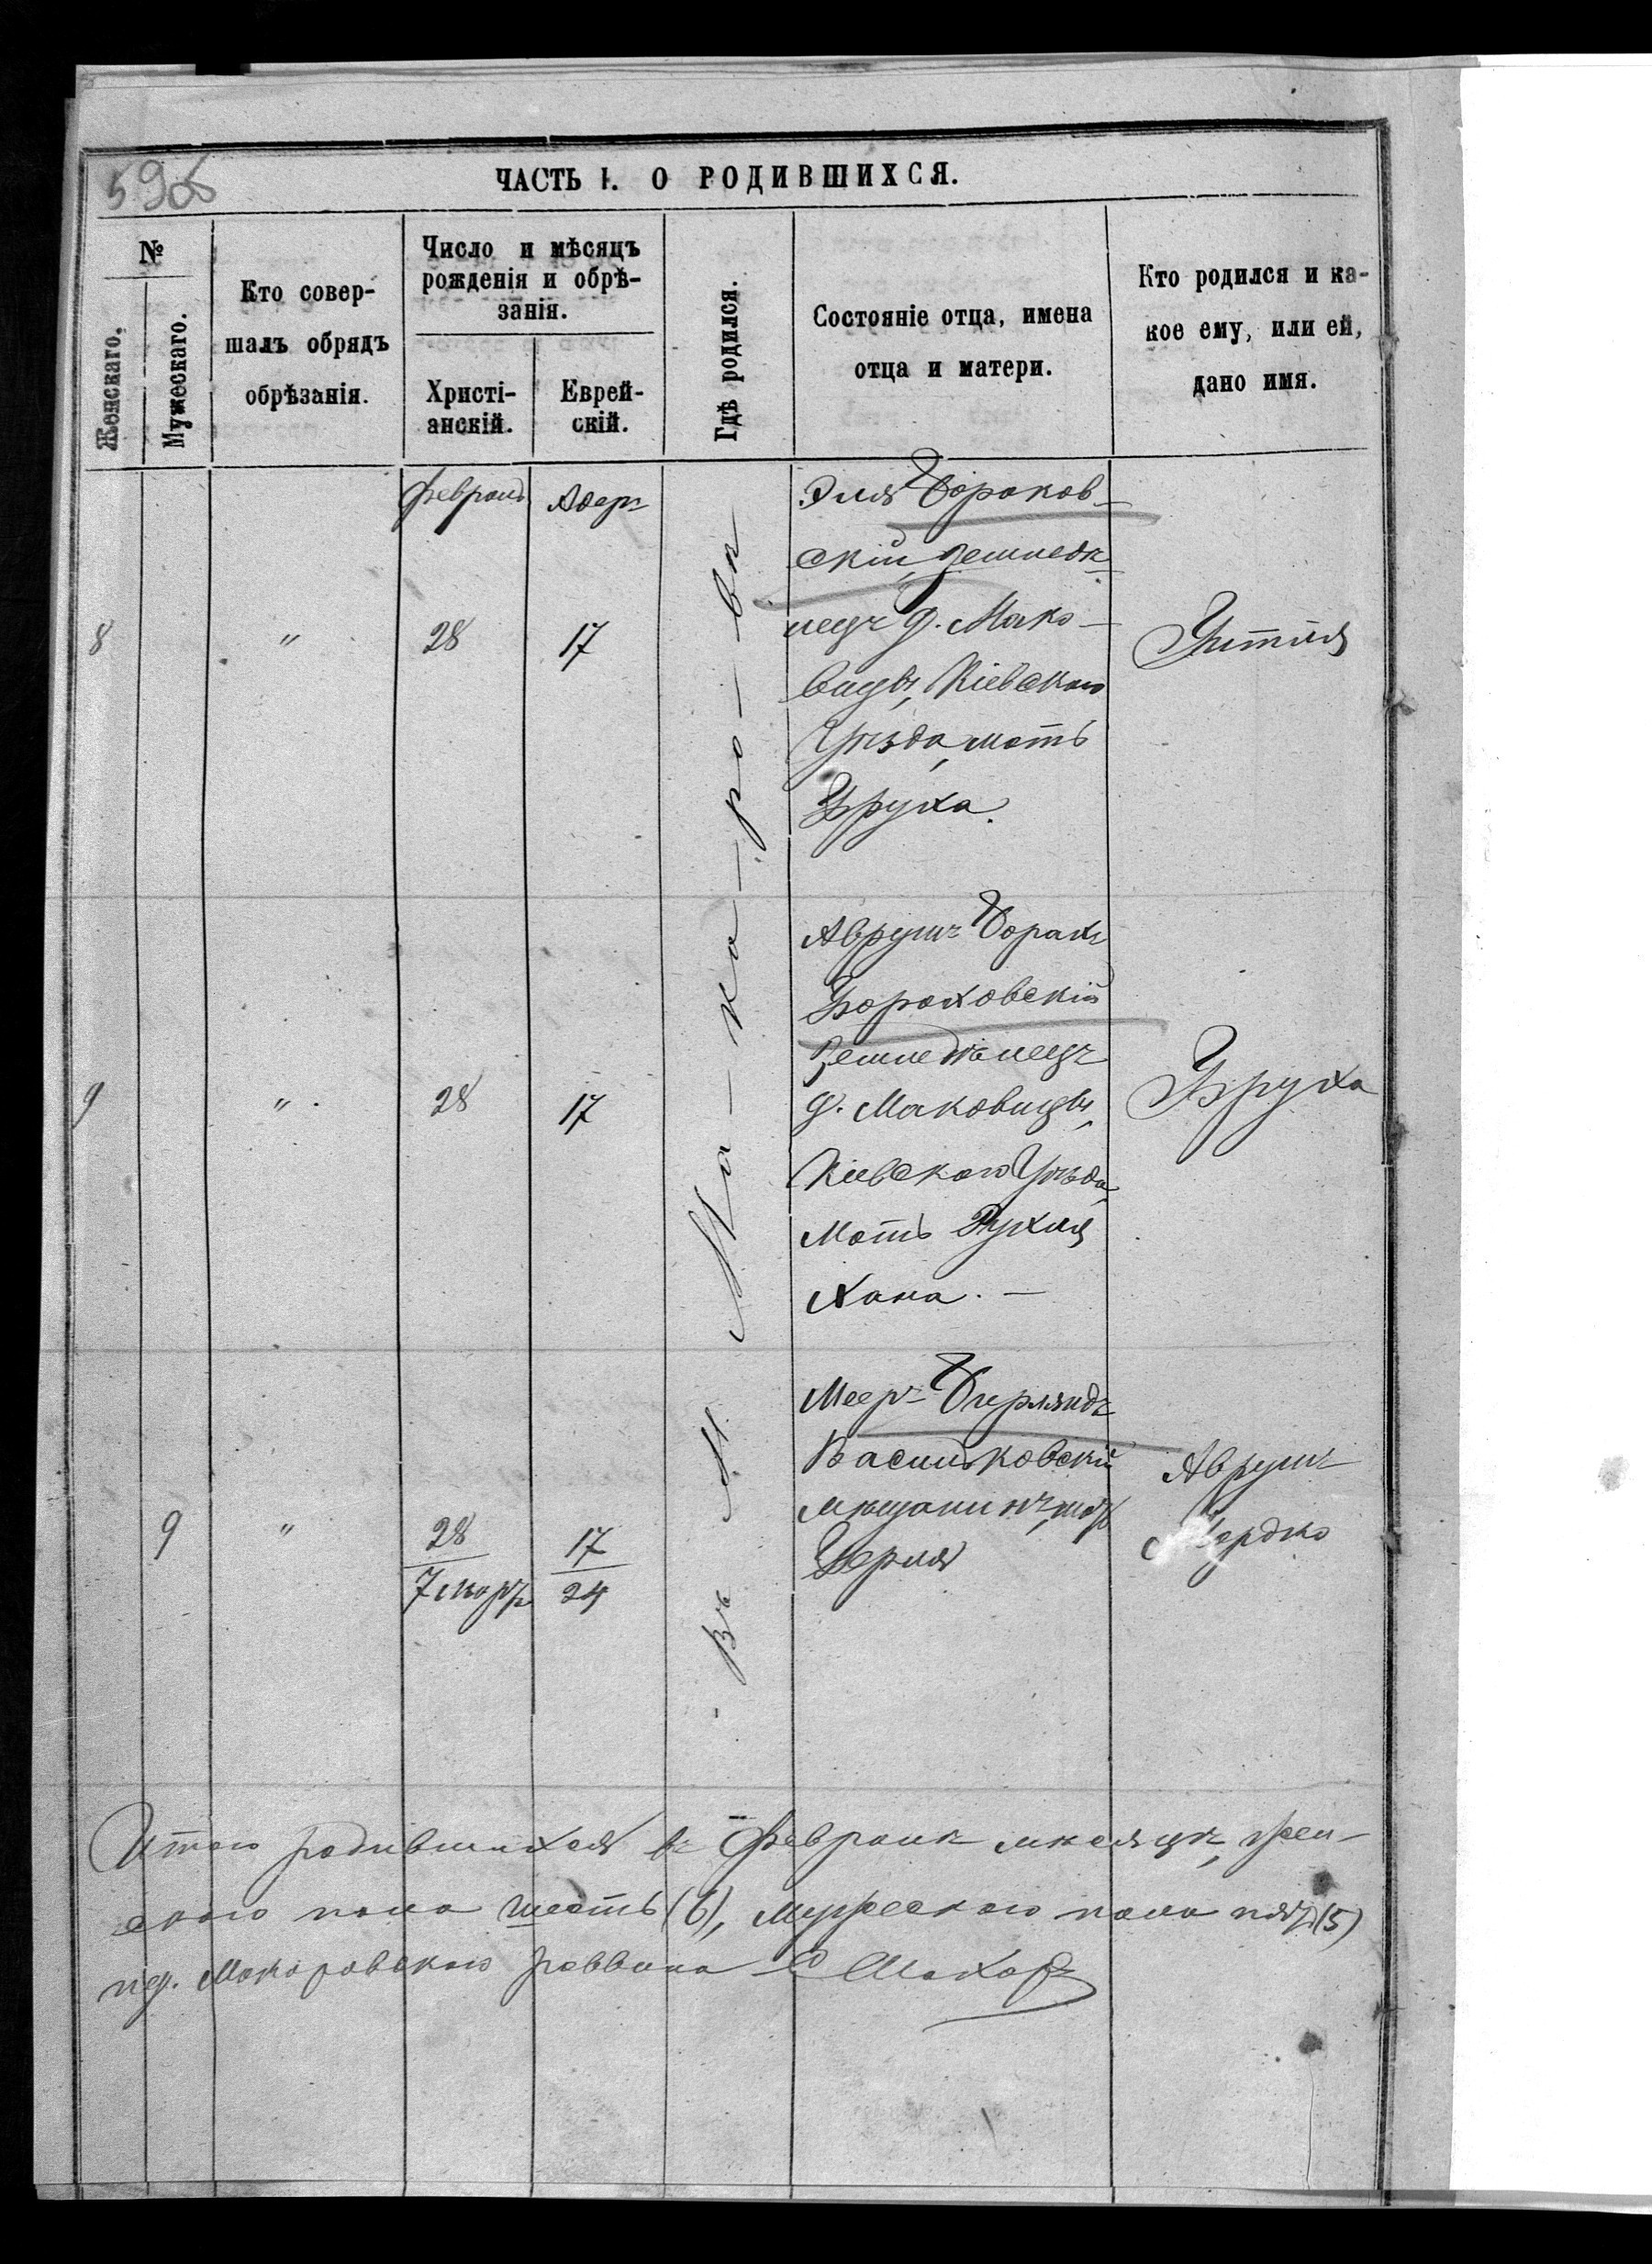 59об
ЧАСТЬ I. О РОДИВШИХСЯ.
№
Женскаго.
Мужескаго.
Кто совер-
шалъ обрядъ
обрѣзанія.
Число и мѣсяцъ
рожденія и обрѣ-
занія.
Христі-
анскій.
Еврей-
скій.
Гдѣ родился.
Состояніе отца, имена
отца и матери.
Кто родился и ка-
кое ему, или ей,
дано имя.
Февраль
Адаръ
Въ М. Ма-ка-ро-вѣ
8
"
28
17
Эля Бороков-
скій, Земледѣ-
лецъ д. Мако-
вицы, Кіевскаго
Уѣзда, мать
Бруха.
Гитля
9
"
28
17
Аврумъ Борахъ
Бороховскій
Земледѣлецъ
д. Маковицы,
Кіевскаго Уѣзда,
Мать Рухля
Хана. —
Бруха
9
"
28
7 Мар.
17
24
Мееръ Берляндъ
Васильковскій
мѣщанинъ, мать
Перля
Аврумъ
Мордко
Итого родившихся въ Февралѣ мѣсяцѣ, жен-
скаго пола шесть (6), мужескаго пола пять (5)
Макаровскаго раввина